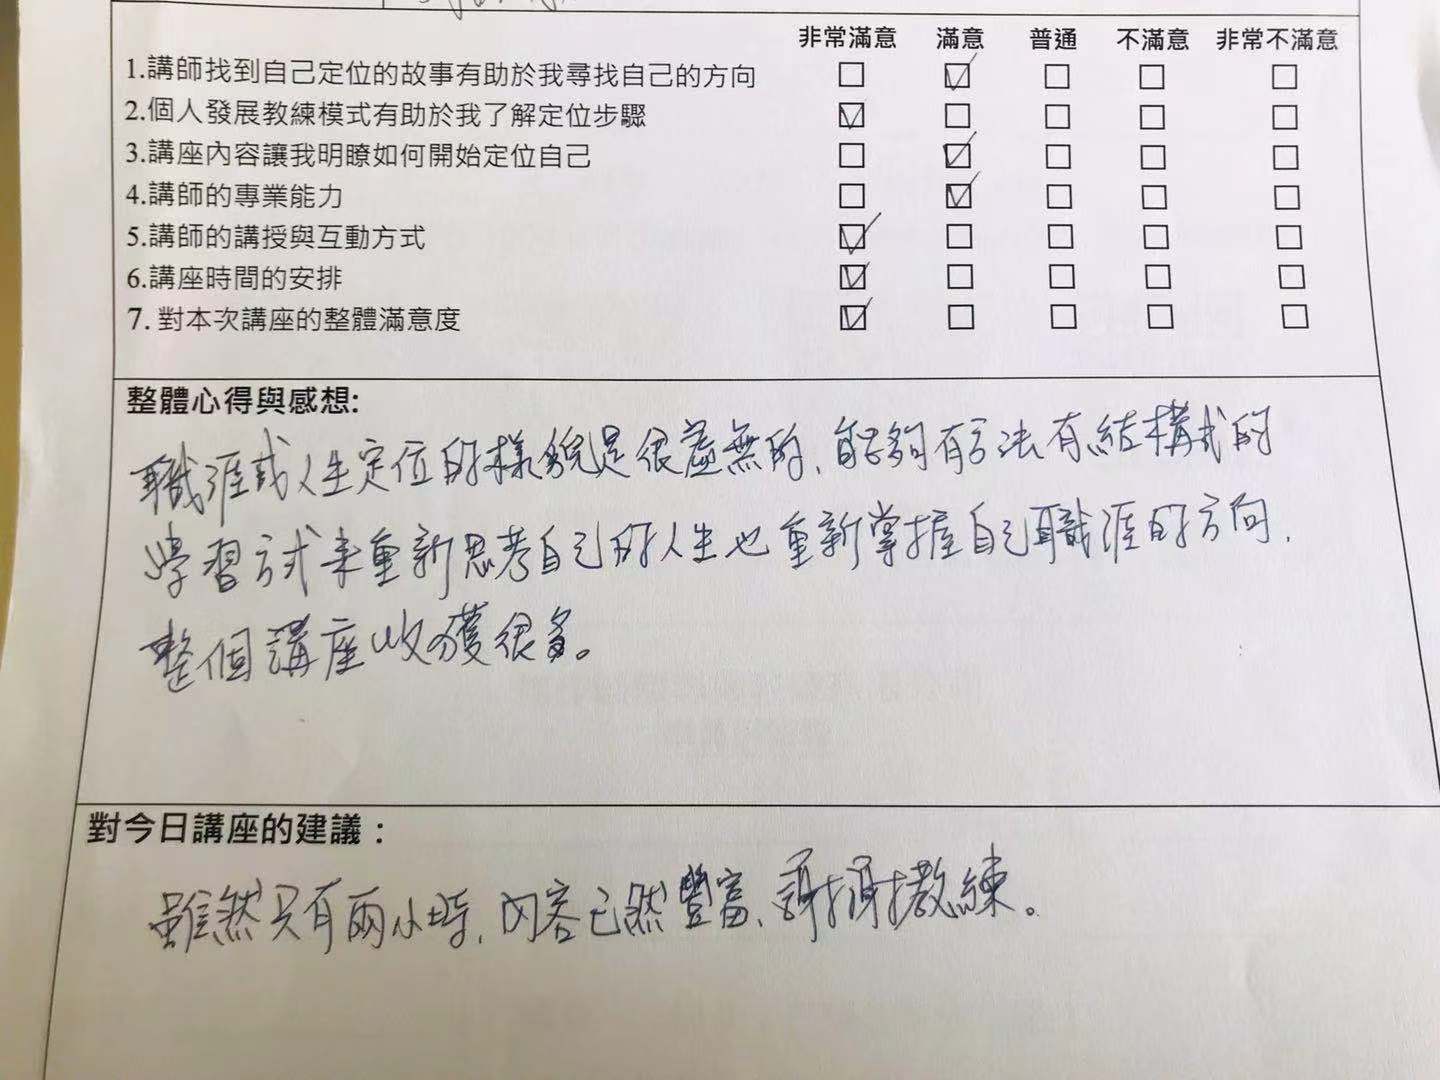 非常滿意 滿意 普通 不滿意 非常不滿意
1.講師找到自己定位的故事有助於我尋找自己的方向
2.個人發展教練模式有助於我了解定位步驟
3.講座內容讓我明瞭如何開始定位自己
4.講師的專業能力
5.講師的講授與互動方式
6.講座時間的安排
7. 對本次講座的整體滿意度
整體心得與感想:
職涯或人生定位的樣貌是很虛無的、能夠有方法有結構式的
學習方式來重新思考自己的人生也重新掌握自己職涯的方向、
整個講座收獲很多。
對今日講座的建議：
雖然只有兩小時、內容已然豐富、謝謝教練。